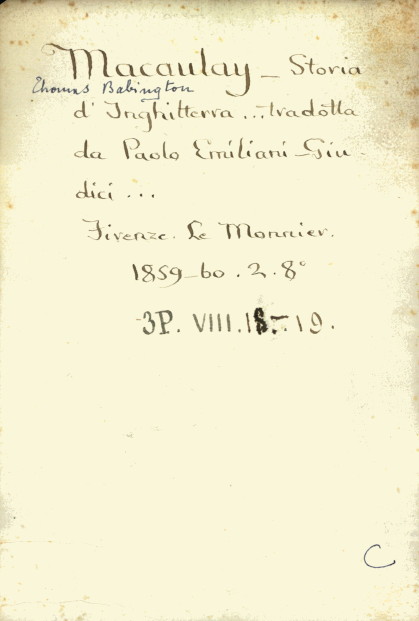 Macaulay – Storia
Thomas Babington
d'Inghilterra ... tradotta
da Paolo Emiliani-Giu-
dici ...
Firenze. Le Monnier.
1859-60. 2. 8°
3P. VIII. 18.-19.
C